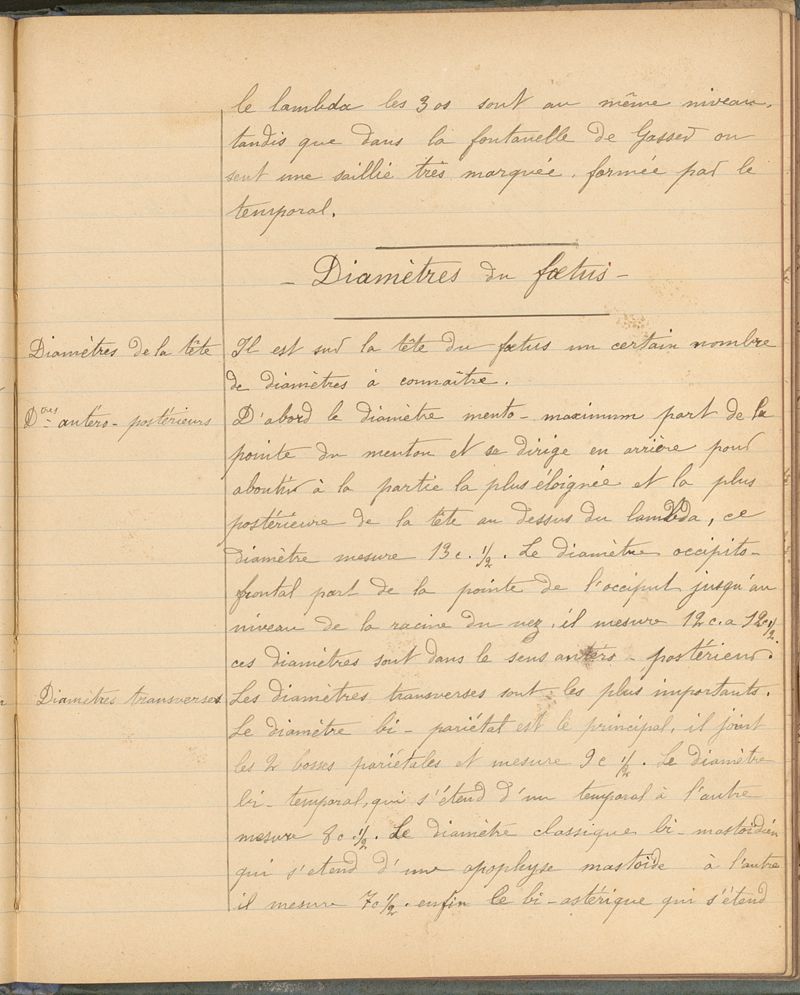 le lambda les 3 os sont au même niveau,
tandis que dans la fontanelle de Gasser on
sent une saillie très marquée, formée par le
temporal.
- Diamètres du fœtus -
Diamètres de la tête
Il est sur la tête du fœtus un certain nombre
de diamètres à connaître.
Dtres antéro-postérieurs
D'abord le diamètre mento-maximum part de la
pointe du menton et se dirige en arrière pour
aboutir à la partie la plus éloignée et la plus
postérieure de la tête au dessus du lambda, ce
diamètre mesure 13 c. 1/2. Le diamètre occipito-
frontal part de la pointe de l'occiput jusqu'au
niveau de la racine du nez, il mesure 12 c. a 12c 1/2.
ces diamètres sont dans le sens antéro-postérieur.
Diamètres transverses
Les diamètres transverses sont les plus importants.
Le diamètre bi-pariétal est le principal, il joint
les 2 bosses pariétales et mesure 9 c 1/2. Le diamètre
bi-temporal, qui s'étend d'un temporal à l'autre
mesure 8 c. 1/2. Le diamètre classique bi-mastoïdien
qui s'étend d'une apophyse mastoïde à l'autre
il mesure 7c 1/2. enfin le bi-astérique qui s'étend